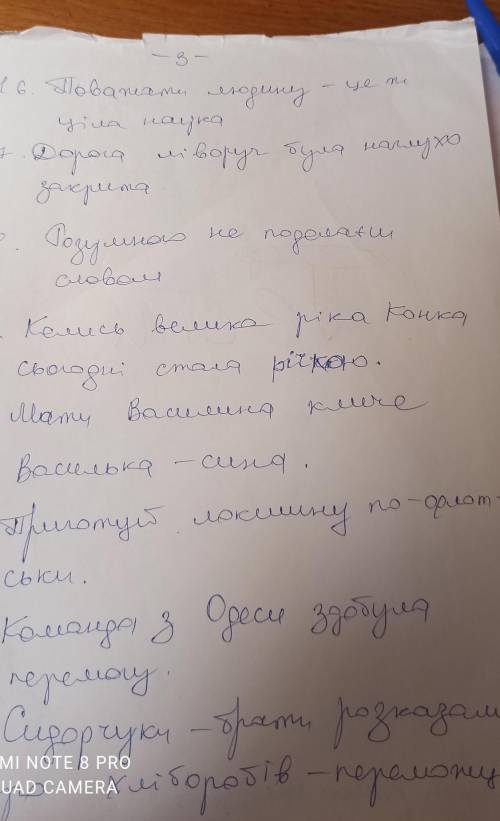 - 3 -
16. Поважати людину - це ж
ціла наука
7. Дорога ліворуч була наглухо
закрита
Розумного не подолаєш
словом
Колись велика ріка Конка
сьогодні стала річкою.
Мати Василина кличе
Василька - сина.
Приготуй локшину по-флот-
ськи.
Команда з Одеси здобула
перемогу.
Сидорчуки - брати розказали
MI NOTE 8 PRO
хліборобів - переможц
UAD CAMERA